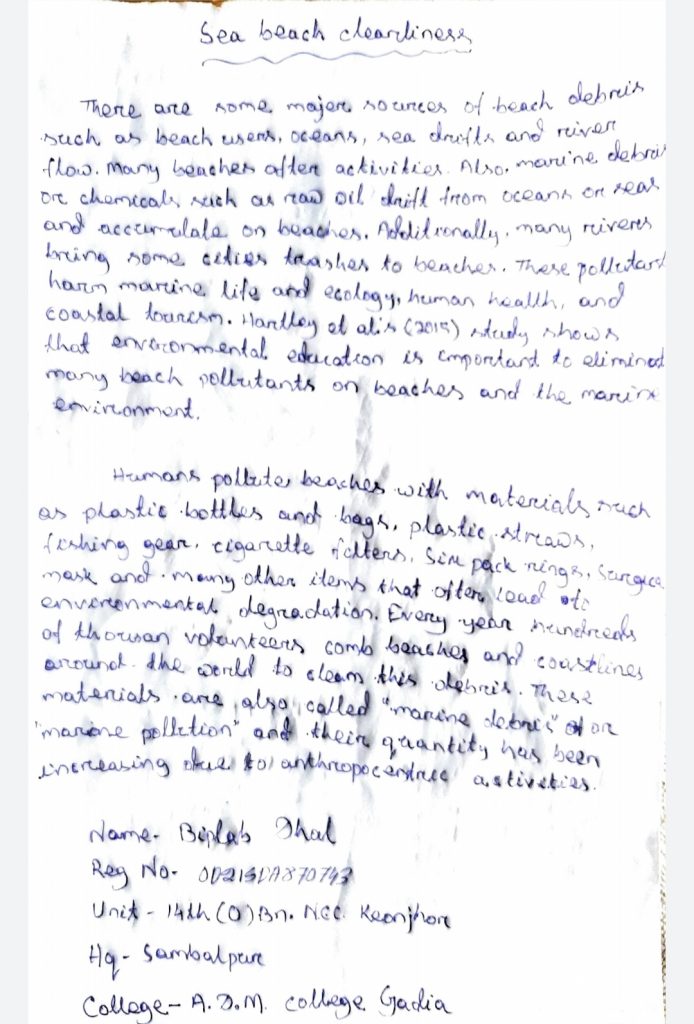 Sea beach cleanliness
There are some major sources of beach debris
such as beach users, oceans, sea drifts and river
flow. Many beaches after activities. Also, marine debris
or chemicals such as raw oil drift from oceans or seas
and accumulate on beaches. Additionally, many rivers
bring some cities trashes to beaches. These pollutant
harm marine life and ecology, human health, and
coastal tourism. Hartley et al.'s (2015) study shows
that environmental education is important to eliminat
many beach pollutants on beaches and the marine
environment.
Humans pollutes beaches with materials such
as plastic bottles and bags, plastic straws,
fishing gear, cigarette filters, Six pack rings, Surgica
mask and many other items that often lead to
environmental degradation. Every year hundreds
of thousan volunteers comb beaches and coastlines
around the world to clean this debris. These
materials are also called "marine debris" or
"marine pollution" and their quantity has been
increasing due to anthropocentric activities.
Name- Biplab Dhal
Reg No- OD21SDA870743
Unit - 14th (O) Bn. NCC. Keonjhor
Hq - Sambalpur
College- A.D.M. college Gadia